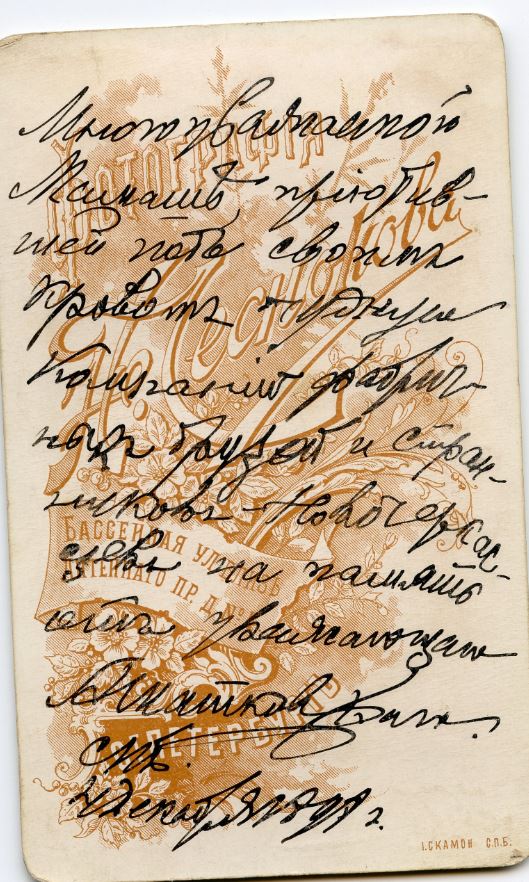 Многоуважаемой
Мамашѣ, приютив-
шей подъ своимъ
кровомъ единую
Компанію фабрич-
ныхъ друзей и стран-
никовъ - Новочеркас-
цевъ на память
отъ уважающаго
СПБ.
4 декабря 1898 г.
ФОТОГРАФІЯ
Чеснокова
БАССЕЙНАЯ УЛ.
ЛИТЕЙНАГО ПР. Д. №
С. ПЕТЕРБУРГЪ
І.СКАМОН С.П.Б.